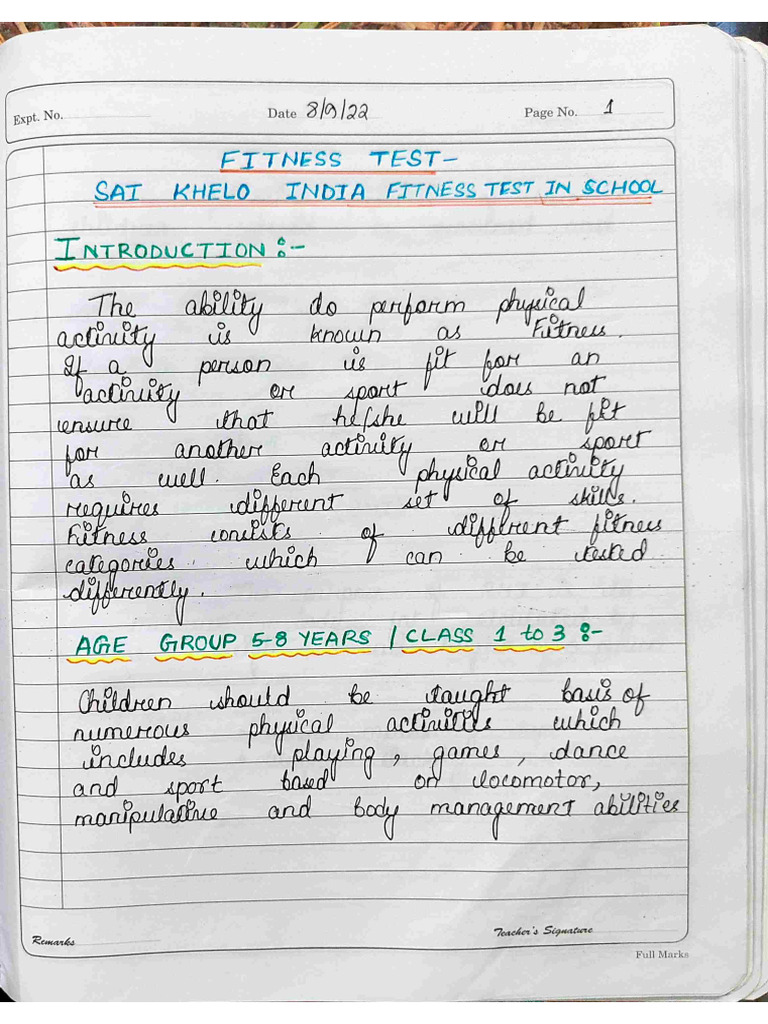 Expt. No.
Date 8/9/22
Page No. 1
FITNESS TEST-
SAI KHELO INDIA FITNESS TEST IN SCHOOL
INTRODUCTION :-
The ability do perform physical
activity is known as Fitness.
If a person is fit for an
activity or sport does not
ensure that he/she will be fit
for another activity or sport
as well. Each physical activity
requires different set of skills.
Fitness consists of different fitness
categories which can be tested
differently.
AGE GROUP 5-8 YEARS / CLASS 1 to 3 :-
Children should be taught basis of
numerous physical activities which
includes playing, games, dance
and sport based on locomotor,
manipulative and body management abilities
Remarks
Teacher's Signature
Full Marks